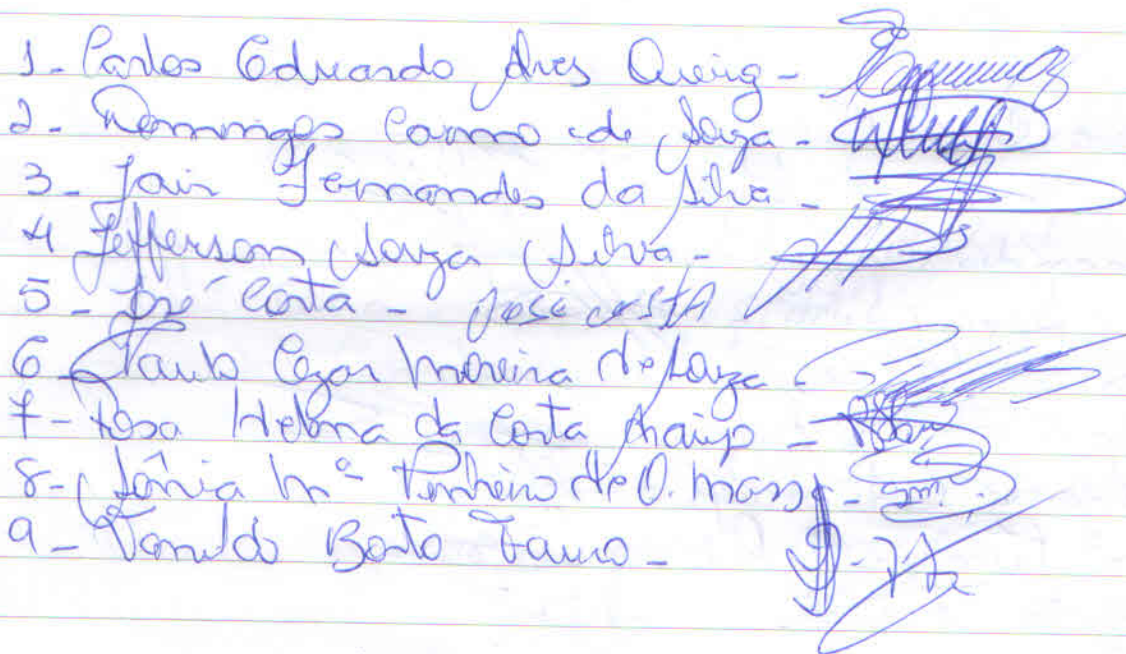 1- Carlos Eduardo Alves Queiroz -
2- Domingos Carmo de Souza -
3- Jair Fernandes da Silva -
4 Jefferson Souza Silva -
5 - José Costa - José COSTA
6 - Paulo Cezar Moreira de Souza -
7 - Rosa Helena da Costa Araújo -
8 - Sônia Mª Pinheiro de O.
9 - Bento